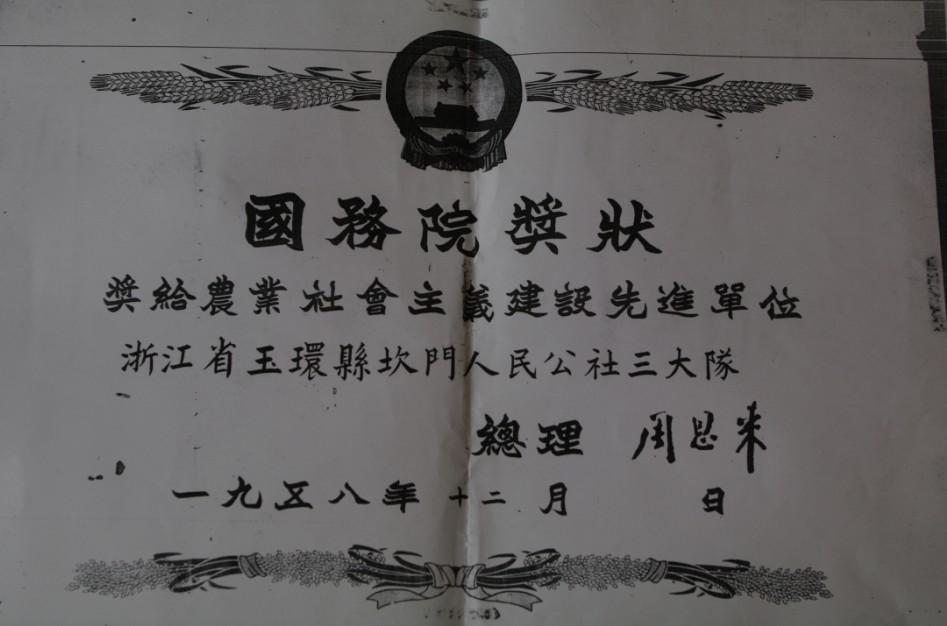 國務院獎狀
獎給農業社會主義建設先進單位
浙江省玉環縣坎門人民公社三大隊
總理 周恩来
一九五八年十二月 日